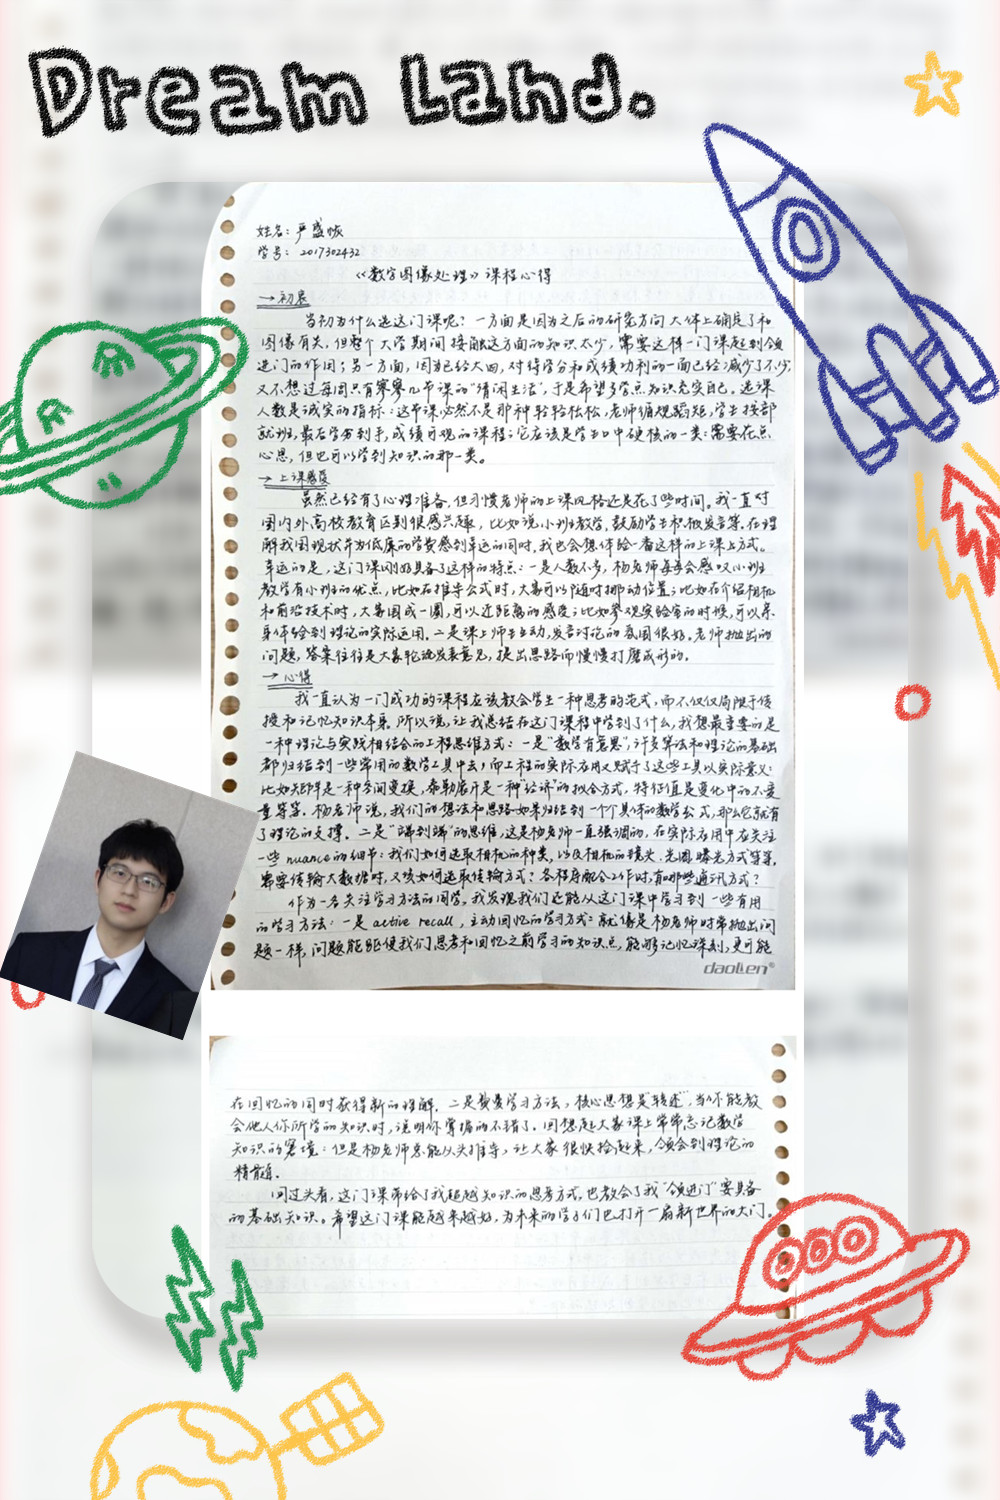 Dream Land.
姓名：严盛
学号：2017302432
《数字图像处理》课程心得
→初衷
当初为什么选这门课呢？一方面是因为之后的研究方向大体上确定了和
图像有关，但整个大学期间接触这方面的知识太少，需要这样一门课起到领
进门的作用；另一方面，因为已经大四，对待学分和成绩功利的一面已经减少了不少，
又不想过每周只有寥寥几节课的“清闲生活”，于是希望多学点知识充实自己。选课
人数是诚实的指标：这节课必然不是那种轻轻松松，老师循规蹈矩，学生按部
就班，最后学分到手，成绩可观的课程；它应该是学生口中硬核的一类：需要花点
心思，但也可以学到知识的那一类。
→上课感受
虽然已经有了心理准备，但习惯老师的上课风格还是花了些时间。我一直对
国内外高校教育区别很感兴趣，比如说小班教学，鼓励学生积极发言等。在理
解我国现状并为低廉的学费感到幸运的同时，我也会想体验一番这样的上课方式。
幸运的是，这门课刚好具备了这样的特点：一是人数不多，杨老师每每会感叹小班
教学有小班的优点，比如在推导公式时，大家可以随时挪动位置；比如在介绍相机
和前沿技术时，大家围成一圈，可以近距离的感受；比如参观实验室的时候，可以亲
身体验到理论的实际运用。二是课上师生互动，发言讨论的氛围很好。老师抛出的
问题，答案往往是大家轮流发表意见，提出思路而慢慢打磨成形的。
→心得
我一直认为一门成功的课程应该教会学生一种思考的范式，而不仅仅局限于传
授和记忆知识本身。所以说，让我总结在这门课程中学到了什么，我想最重要的是
一种理论与实践相结合的工程思维方式：一是“数学有意思”，许多算法和理论的基础
都归结到一些常用的数学工具中去，而工程的实际应用又赋予了这些工具以实际意义：
比如矩阵是一种空间变换，泰勒展开是一种“经济”的拟合方式，特征值是变化中的不变
量等等。杨老师说，我们的想法和思路如果归结到一个个具体的数学公式，那么它就有
了理论的支撑。二是“端到端”的思维，这是杨老师一直强调的，在实际应用中应关注
一些nuance的细节：我们如何选取相机的种类，以及相机的镜头、光圈、曝光方式等等，
需要传输大数据时，又该如何选取传输方式？各程序配合工作时，有哪些通讯方式？
作为一名关注学习方法的同学，我发现我们还能从这门课中学习到一些有用
的学习方法：一是active recall，主动回忆的学习方式：就像是杨老师时常抛出问
题一样，问题能驱使我们思考和回忆之前学习的知识点，能够记忆深刻，更可能
daolien®
在回忆的同时获得新的理解。二是费曼学习方法，核心思想是“转述”，当你能教
会他人你所学的知识时，说明你掌握的不错了。回想起大家课上常常忘记数学
知识的窘境：但是杨老师总能从头推导，让大家很快捡起来，领会到理论的
精髓。
回过头看，这门课带给了我超越知识的思考方式，也教会了我“领进门”要具备
的基础知识。希望这门课能越来越好，为未来的学子们也打开一扇新世界的大门。